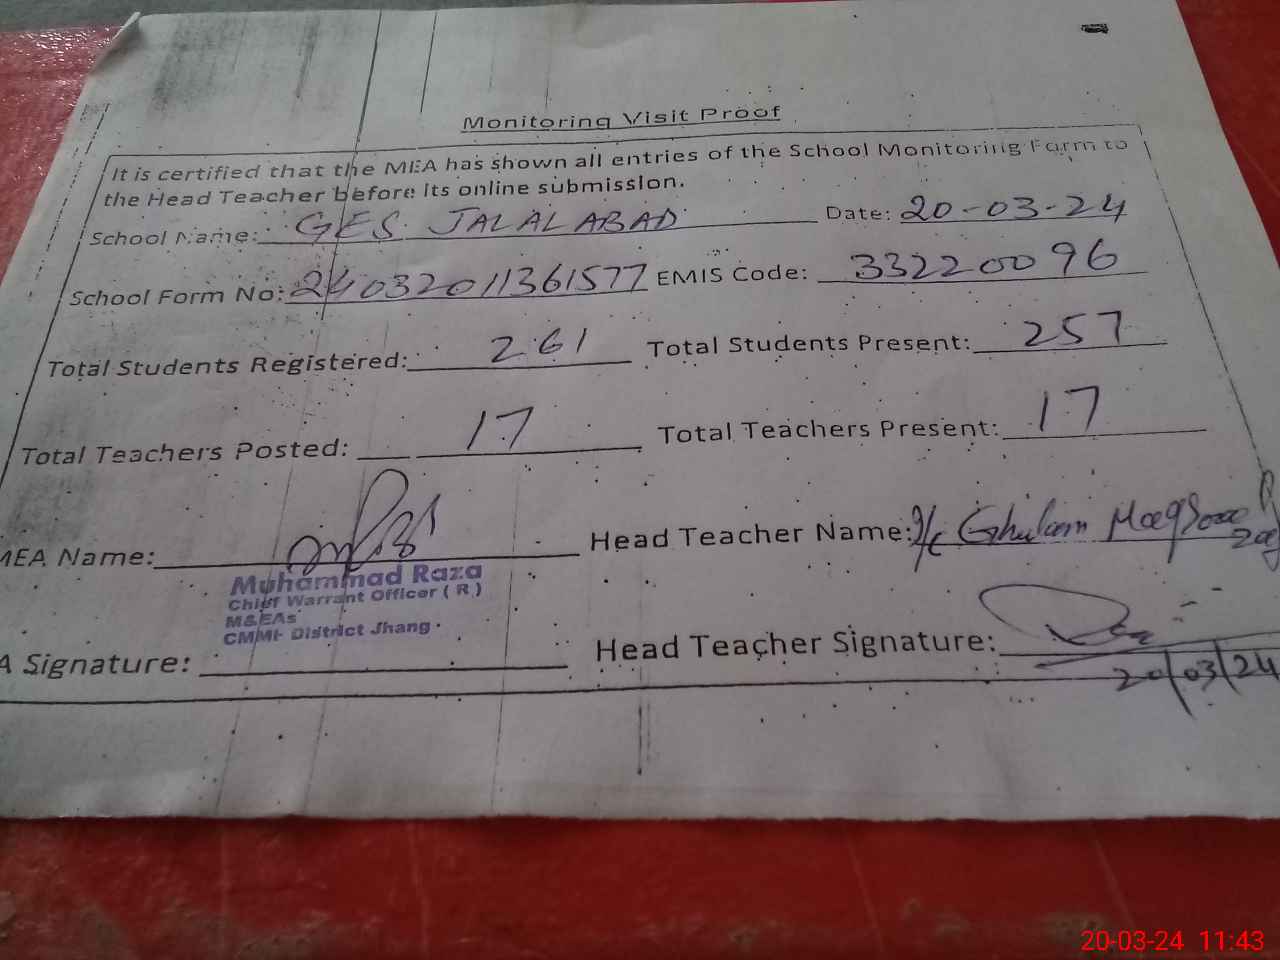 Monitoring Visit Proof
It is certified that the MEA has shown all entries of the School Monitoring Form to
the Head Teacher before its online submission.
School Name: GES JALALABAD Date: 20-03-24
School Form No: 24032011361577 EMIS Code: 33220096
Total Students Registered: 261 Total Students Present: 257
Total Teachers Posted: 17 Total Teachers Present: 17
MEA Name: Head Teacher Name: I/c Ghulam
Muhammad Raza
Chief Warrant Officer ( R )
M&EAs
CMMF District Jhang
A Signature: Head Teacher Signature:
20/03/24
20-03-24 11:43